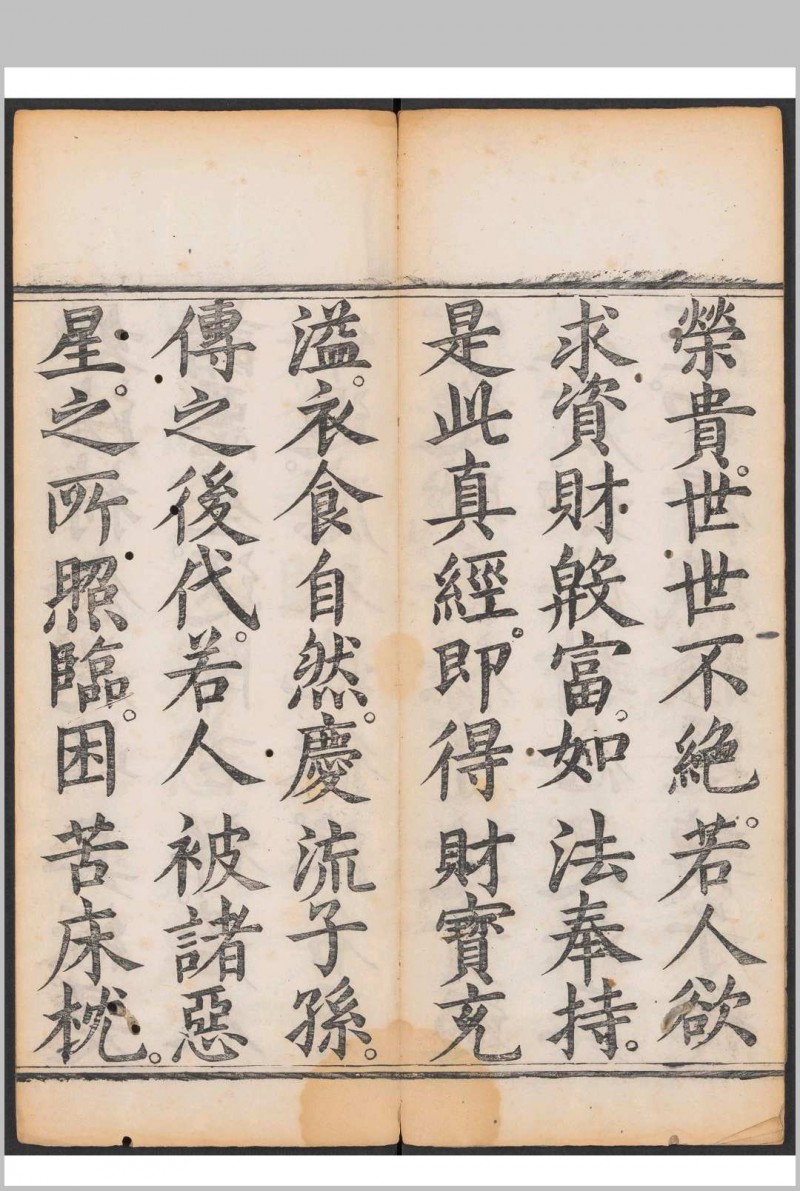 榮貴。世世不絶。若人欲
求資財殷富。如法奉持。
是此真經。即得財寳充
溢。衣食自然。慶流子孫。
傳之後代。若人被諸惡
星。之所照臨。困苦床枕。